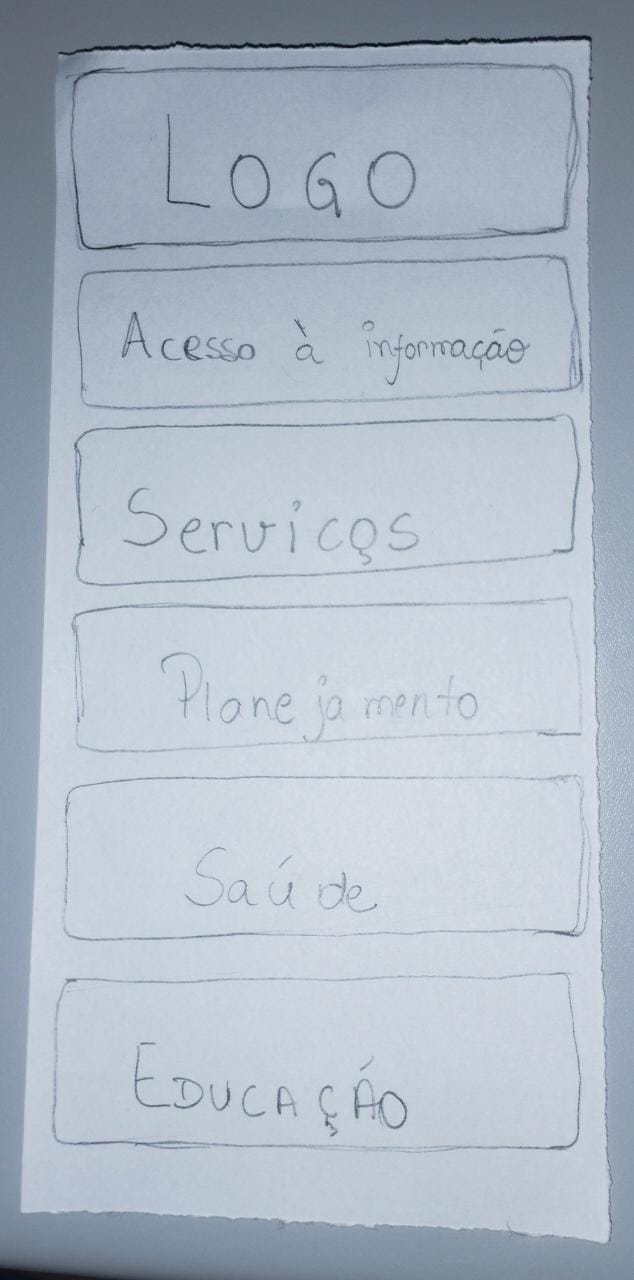 LOGO
Acesso à informação
Serviços
Planejamento
Saúde
EDUCAÇÃO